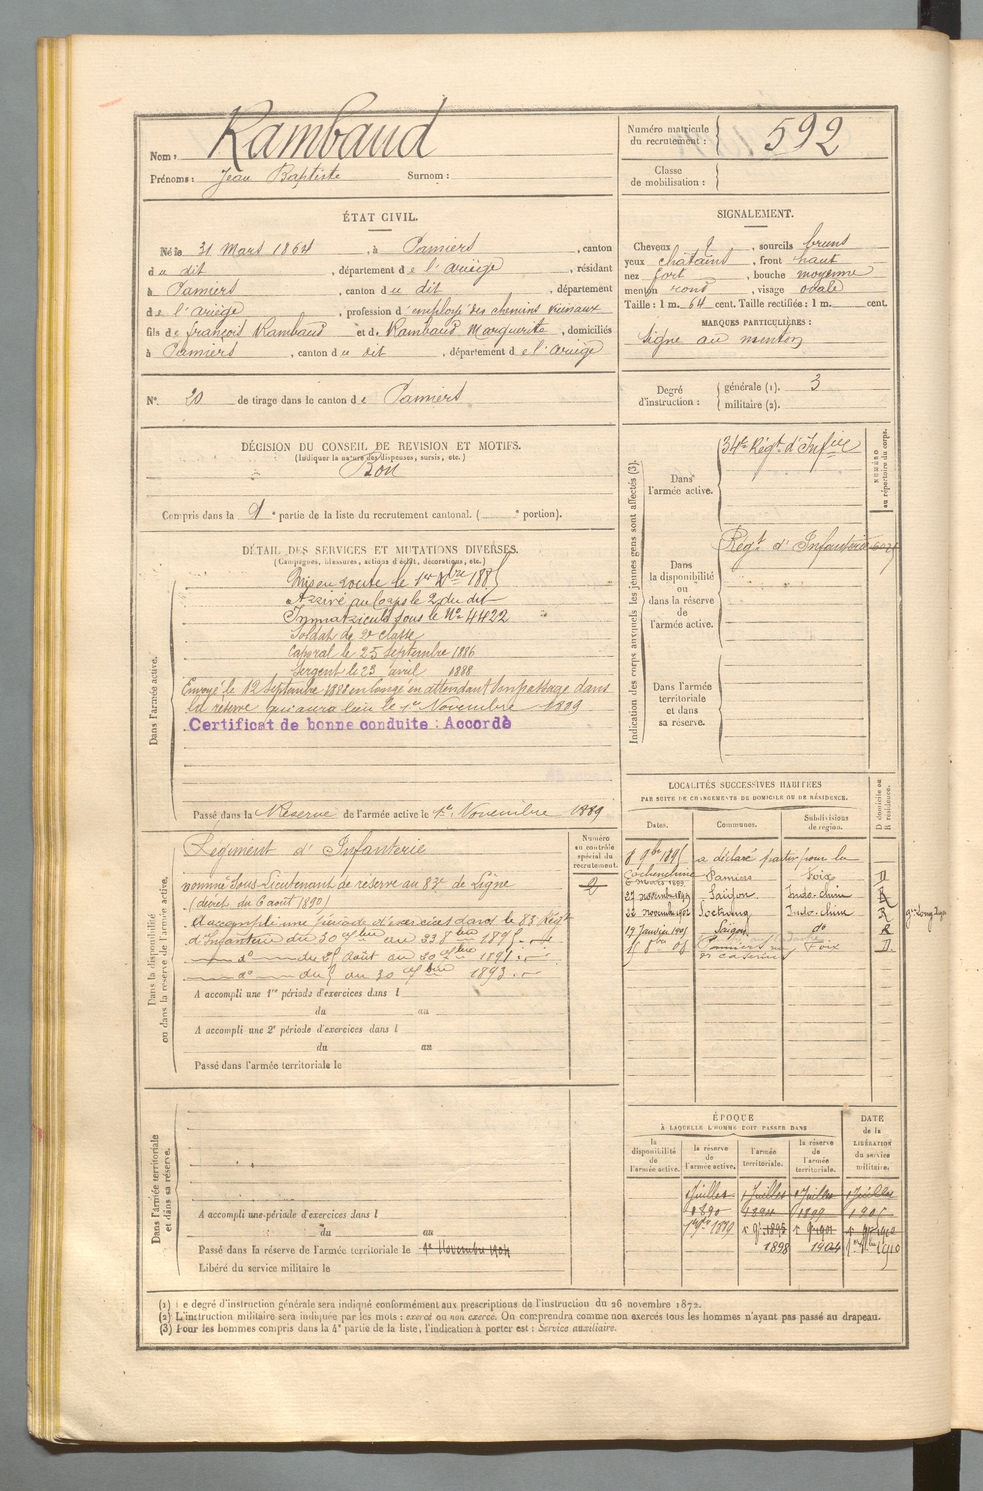 Nom : Rambaud
Prénoms : Jean Baptiste Surnom :
Numéro matricule du recrutement : 592
Classe de mobilisation :
ÉTAT CIVIL.
Né le 31 Mars 1864, à Pamiers, canton
du dit, département de l'ariège, résidant
à Pamiers, canton du dit, département
de l'ariège, profession d'employé des chemins vicinaux
fils de françois Rambaud et de Rambaud Marguerite, domiciliés
à Pamiers, canton du dit, département de l'ariège
SIGNALEMENT.
Cheveux , sourcils bruns
yeux chatains, front haut
nez fort, bouche moyenne
menton rond, visage ovale
Taille : 1 m. 64 cent. Taille rectifiée : 1 m. cent.
MARQUES PARTICULIÈRES :
Signe au menton
N° 20 de tirage dans le canton de Pamiers
Degré d'instruction : générale (1). 3
militaire (2).
DÉCISION DU CONSEIL DE REVISION ET MOTIFS.
(Indiquer la nature des dispenses, sursis, etc.)
Bon
Compris dans la 1e partie de la liste du recrutement cantonal. ( e portion).
DÉTAIL DES SERVICES ET MUTATIONS DIVERSES.
(Campagnes, blessures, actions d'éclat, décorations, etc.)
Dans l'armée active.
Mis en route le 1er Xbre 1885
Arrivé au Corps le 2 du dit
Immatriculé sous le No 4422
Soldat de 2e classe
Caporal le 25 Septembre 1886
Sergent le 23 avril 1888
Envoyé le 12 Septembre 1888 en congé en attendant son passage dans
la réserve qui aura lieu le 1er Novembre 1889
Certificat de bonne conduite : Accordé
Passé dans la Réserve de l'armée active le 1er Novembre 1889
Indication des corps auxquels les jeunes gens sont affectés (3).
NUMÉRO au répertoire du corps.
Dans l'armée active.
34e Régt d'Infrie
Dans la disponibilité ou dans la réserve de l'armée active.
Régt d'Infanterie
Dans l'armée territoriale et dans sa réserve.
Dans la disponibilité ou dans la réserve de l'armée active.
Numéro au contrôle spécial du recrutement.
Régiment d'Infanterie
nommé Sous-Lieutenant de réserve au 83e de Ligne
(décret du 6 août 1890)
A accompli une période d'exercices dans le 83 Régt
d'Infanterie du
do du août au 1891
do du au 30 1893
A accompli une 1re période d'exercices dans l
du au
A accompli une 2e période d'exercices dans l
du au
Passé dans l'armée territoriale le
LOCALITÉS SUCCESSIVES HABITÉES
PAR SUITE DE CHANGEMENTS DE DOMICILE OU DE RÉSIDENCE.
Dates. Communes. Subdivisions de region. D domicile ou R résidence.
8 9bre 1895 a déclaré partir pour la
Cochinchine
6 mars 1899 Pamiers Foix D
27 novembre 1899 Saïgon Indo-chine R
22 novembre 1902 Soctrang Indo-chine R
17 Janvier 1905 Saïgon do R
Pamiers Foix D
Dans l'armée territoriale et dans sa réserve.
A accompli une période d'exercices dans l
du au
Passé dans la réserve de l'armée territoriale le 1er Novembre 1904
Libéré du service militaire le
ÉPOQUE
À LAQUELLE L'HOMME DOIT PASSER DANS
la disponibilité de l'armée active.
la réserve de l'armée active.
l'armée territoriale.
la réserve de l'armée territoriale.
DATE de la LIBÉRATION du service militaire.
1 Juillet 1 Juillet 1 Juillet 1 Juillet
1890 1894 1899 1905
1889 1895 1901 1910
1898 1904 1910
(1) Le degré d'instruction générale sera indiqué conformément aux prescriptions de l'instruction du 26 novembre 1872.
(2) L'instruction militaire sera indiquée par les mots : exercé ou non exercé. On comprendra comme non exercés tous les hommes n'ayant pas passé au drapeau.
(3) Pour les hommes compris dans la 4e partie de la liste, l'indication à porter est : Service auxiliaire.